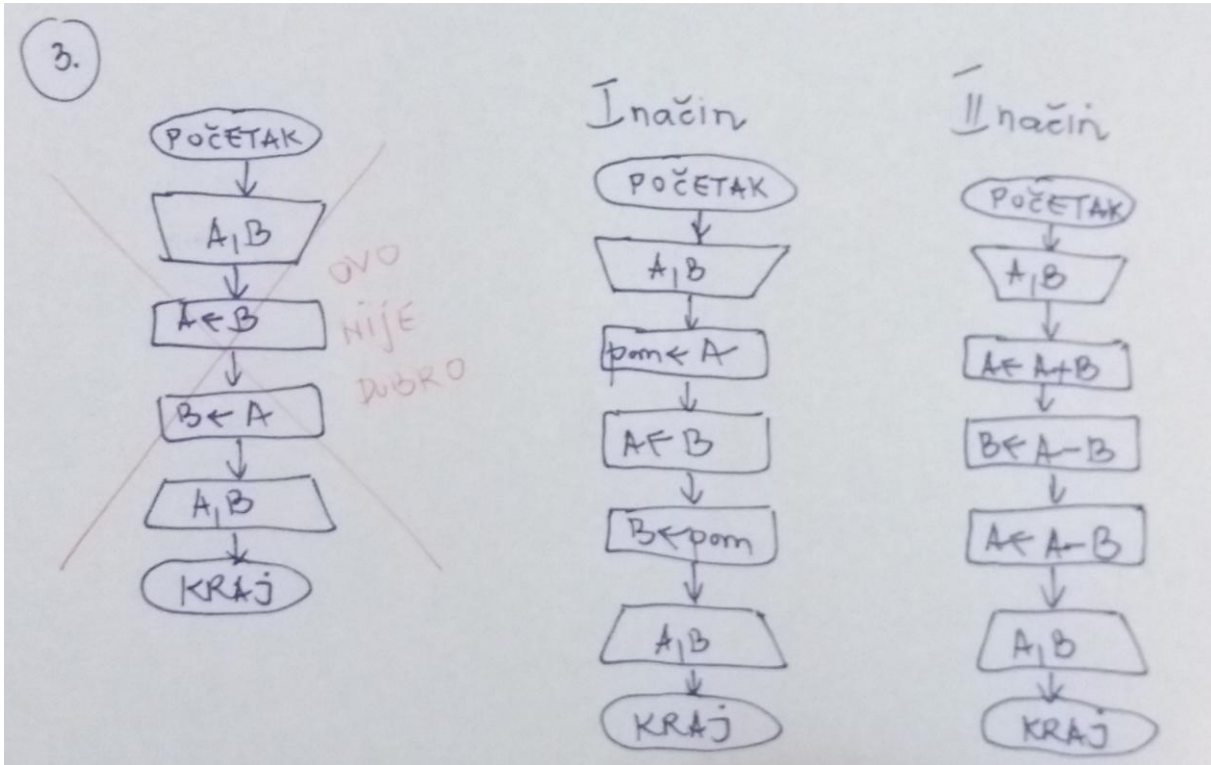 3.
POČETAK
A,B
A←B
B←A
A,B
KRAJ
OVO
NIJE
DOBRO
I način
POČETAK
A,B
pom←A
A←B
B←pom
A,B
KRAJ
II način
POČETAK
A,B
A←A+B
B←A-B
A←A-B
A,B
KRAJ